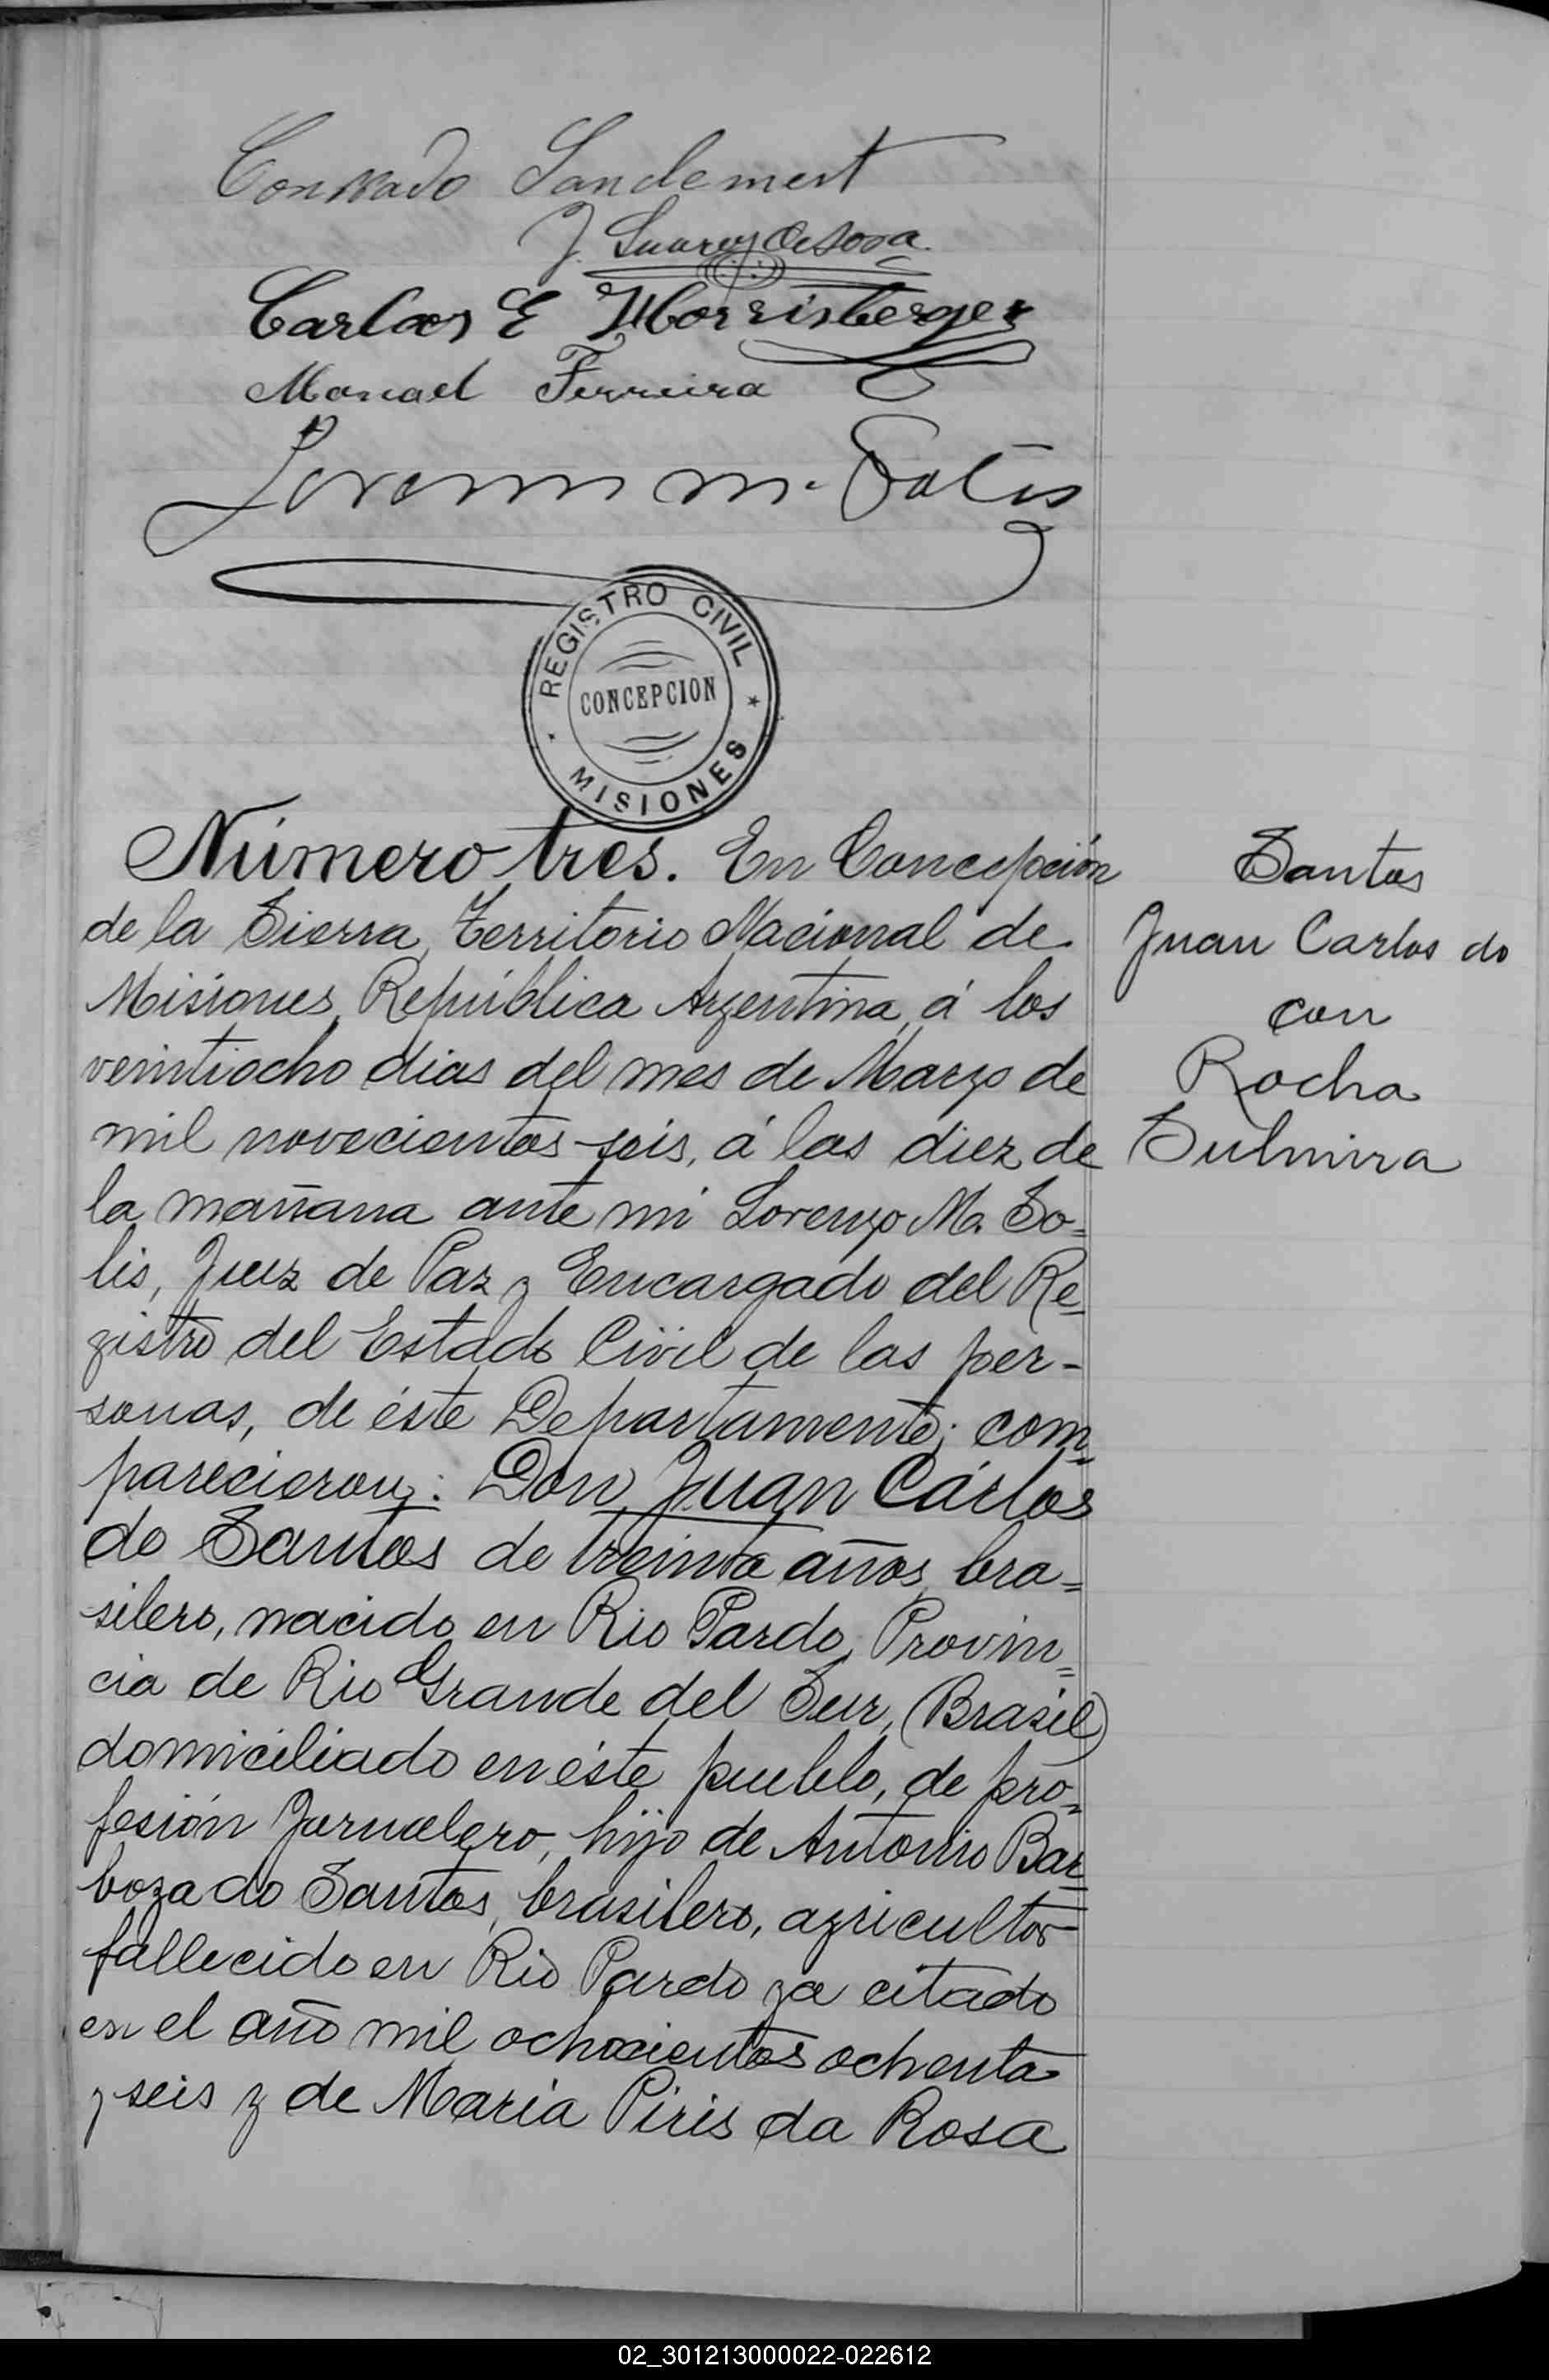 Conrado Sandemest
J. Suarez
Carlos E Morrisberger
Manael Ferreira
Lorenzo M. Solis
REGISTRO CIVIL
CONCEPCION
MISIONES
Número tres. En Concepción
de la Sierra, Territorio Nacional de
Misiones, República Argentina, á los
veintiocho dias del mes de Marzo de
mil novecientos seis, á las diez de
la mañana ante mi Lorenzo M. So=
lis, Juez de Paz y Encargado del Re=
gistro del Estado Civil de las per-
sonas, de éste Departamento; com=
parecieron: Don Juan Cárlos
do Santos de treinta años, bra=
silero, nacido en Rio Pardo, Provin=
cia de Rio Grande del Sur, (Brasil)
domiciliado en éste pueblo, de pro=
fesión Jornalero, hijo de Antonio Bar=
boza do Santos, brasilero, agricultor
fallecido en Rio Pardo ya citado
en el año mil ochocientos ochenta
y seis y de Maria Piris da Rosa
Santos
Juan Carlos do
con
Rocha
Sulmira
02_301213000022-022612